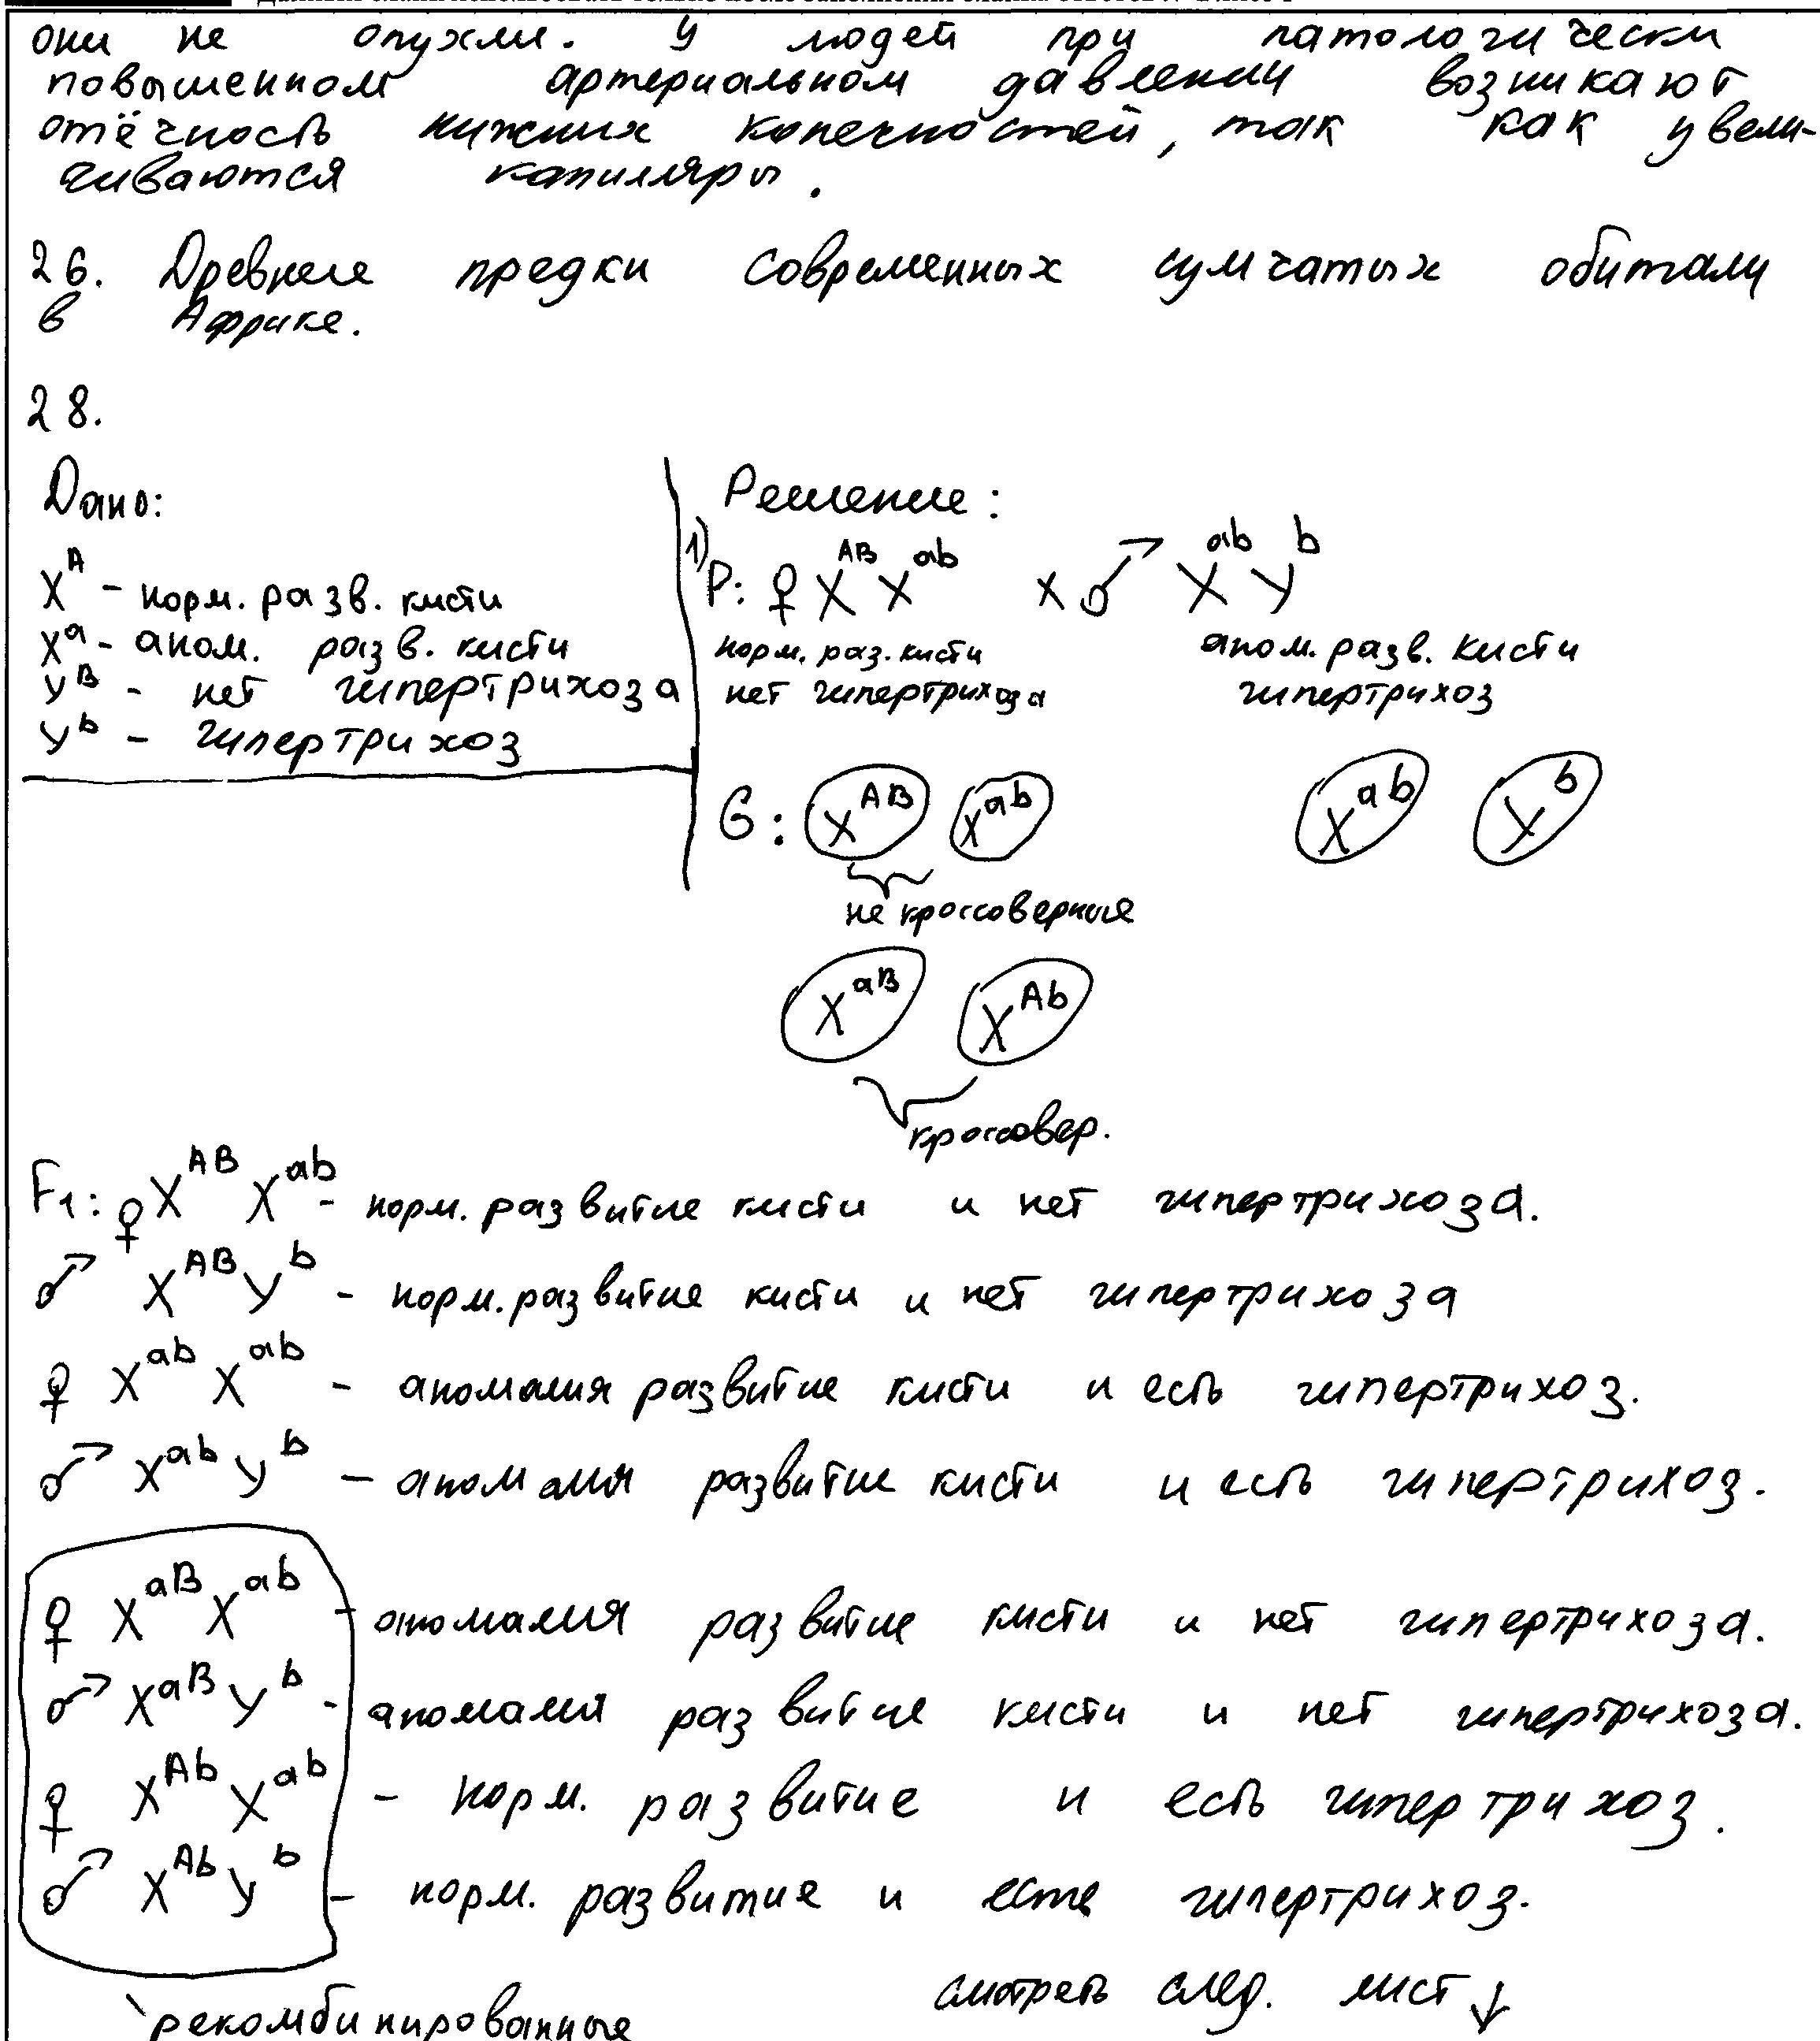 они не опухли. У людей при патологически
повышенном артериальном давлении возникают
отёчность нижних конечностей, так как увели-
чиваются капилляры.
26. Древнеие предки современных сумчатых обитали
в Африке.
28.
Дано:
X^A - норм. разв. кисти
X^a - аном. разв. кисти
Y^B - нет гипертрихоза
Y^b - гипертрихоз
Решение:
1) P: ♀ X^AB X^ab x ♂ X^ab Y^b
норм. раз. кисти аном. разв. кисти
нет гипертрихоза гипертрихоз
G: X^AB X^ab X^ab Y^b
не кроссоверные
X^aB X^Ab
кроссовер.
F1: ♀ X^AB X^ab - норм. развитие кисти и нет гипертрихоза.
♂ X^AB Y^b - норм. развитие кисти и нет гипертрихоза
♀ X^ab X^ab - аномалия развитие кисти и есть гипертрихоз.
♂ X^ab Y^b - аномалия развитие кисти и есть гипертрихоз.
♀ X^aB X^ab - аномалия развитие кисти и нет гипертрихоза.
♂ X^aB Y^b - аномалия развитие кисти и нет гипертрихоза.
♀ X^Ab X^ab - норм. развитие и есть гипертрихоз.
♂ X^Ab Y^b - норм. развитие и есть гипертрихоз.
рекомбинированные
смотреть след. лист ↓